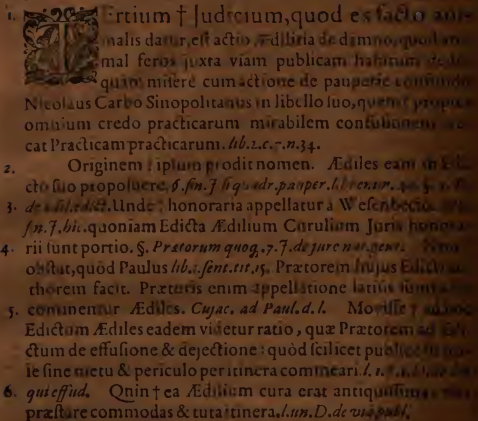 1. TErtium † Judicium, quod ex facto ani-
malis datur, est actio Ædilitia de damno, quod
mal feros juxta viam publicam habitum
quàm miserè cum actione de pauperie
Nicolaus Carbo Sinopolitanus in libello suo, quem
omnium credo practicarum mirabilem confusionem
cat Practicam practicarum. lib.2.c.7.n.34.
2. Originem † ipsum prodit nomen. Ædiles eam in
cto suo proposuere, §. fin. J si quadr. pauper.
3. Unde † honoraria appellatur à Wesenbecio,
fn. J. hic. quoniam Edicta Ædilium Curulium Juris
4. rii sunt portio. §. Prætorum quoq, 7. J. de jure nat. gent.
obstat, quòd Paulus lib.1. sent. tit. 15. Prætorem hujus
thorem facit. Præturis enim appellatione latius
5. continentur Ædiles. Cujac. ad Paul. d. l. Movisse †
Edictum Ædiles eadem videtur ratio, quæ Prætorem ad
ctum de effusione & dejectione: quòd scilicet publicè
ie sine metu & periculo per itinera commeari.
6. qui effud. Quin † ea Ædilium cura erat
præstare commodas & tuta itinera. l. un. D. de via publ.